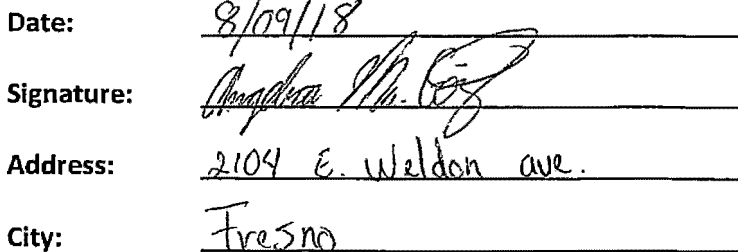 Date: 8/09/18
Signature: M.
Address: 2104 E. Weldon ave.
City: Fresno